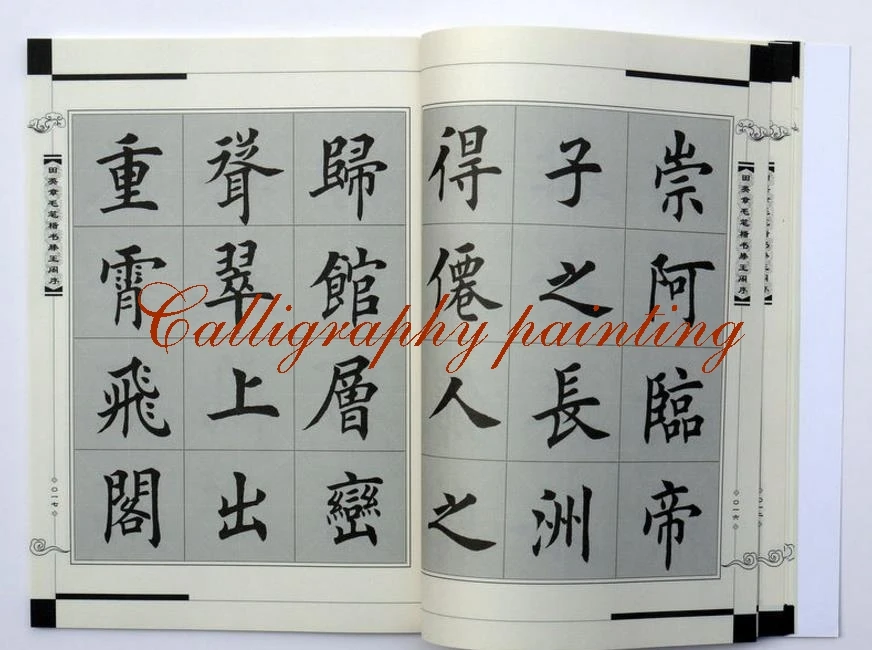 田英章毛笔楷书滕王阁序
〇一六
崇阿臨帝
子之長洲
得僊人之
歸館層巒
聳翠上出
重霄飛閣
田英章毛笔楷书滕王阁序
〇一七
Calligraphy painting